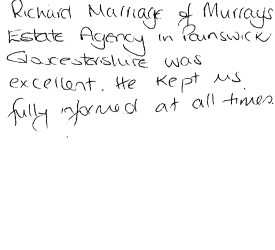 Richard Marriage of Murrays
Estate Agency in Painswick
Glocestershire was
excellent. He kept us
fully informed at all times